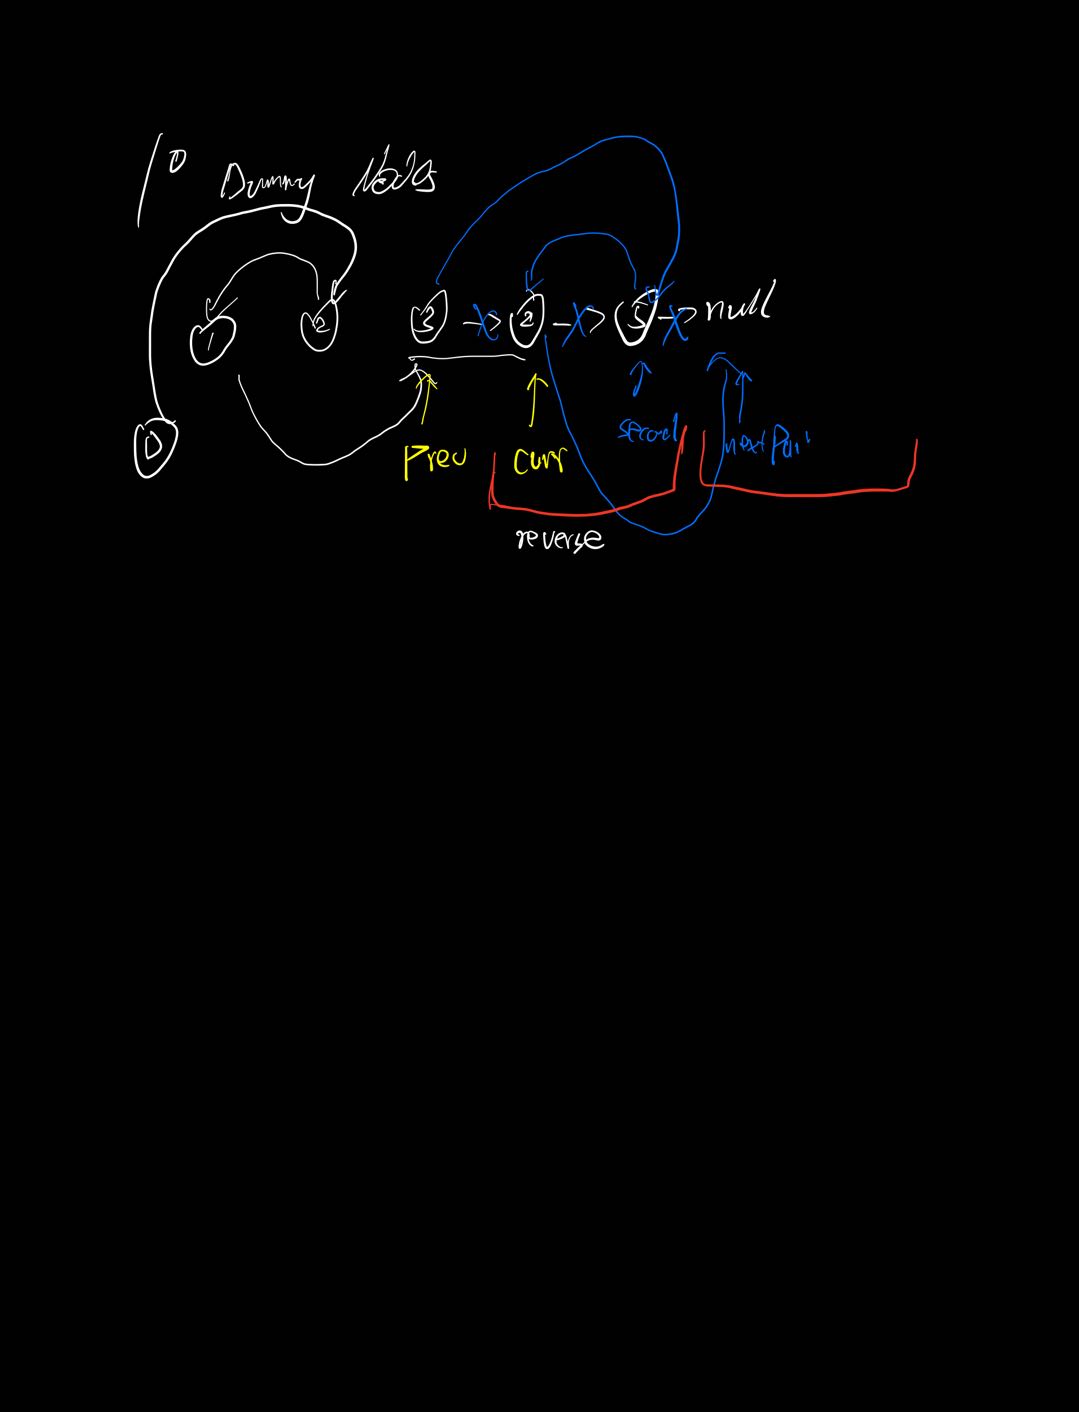 1º Dummy Nodes
1 2 3 -> 2 -> 5 -> null
D
Prev curr second nextPair
reverse